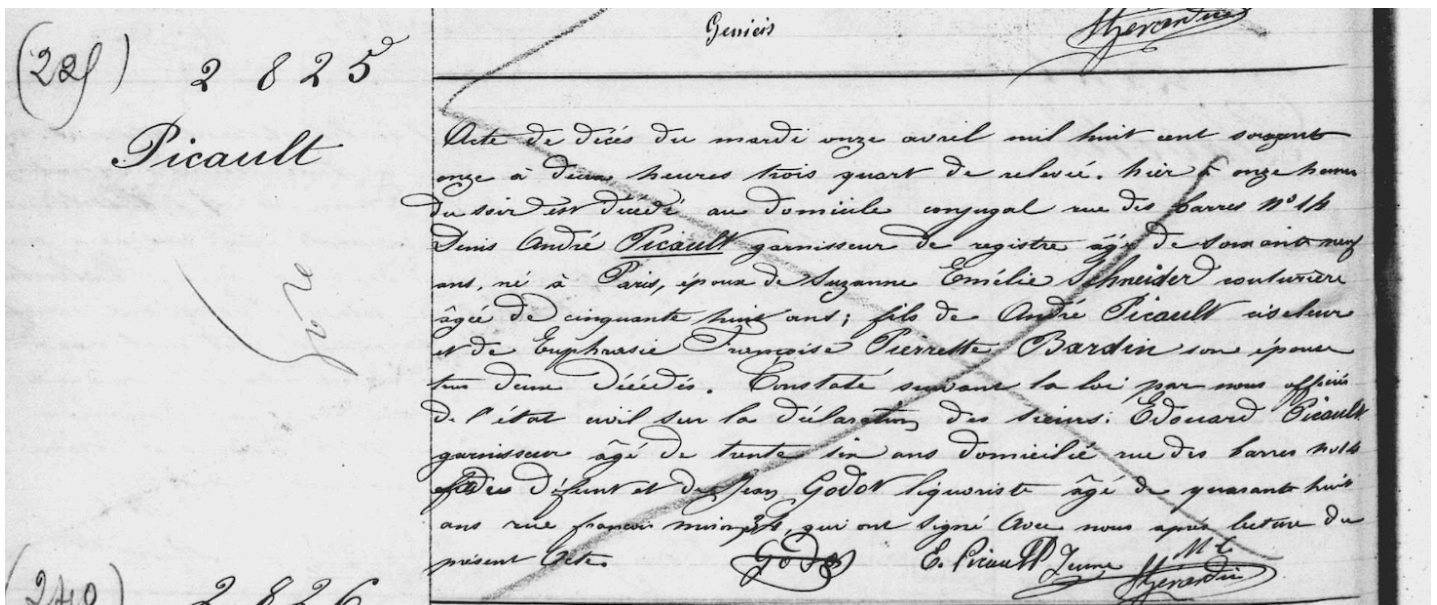 Geniois
(229)
2825
Picault
Acte de décès du mardi onze avril mil huit cent soixante
onze à deux heures trois quart de relevée. hier à onze heures
du soir est décédé au domicile conjugal rue des barres nº 14
Denis André Picault garnisseur de registre âgé de soixante neuf
ans, né à Paris, époux de Suzanne Emélie Schneider couturière
âgée de cinquante huit ans; fils de André Picault ciseleur
et de Euphrasie Françoise Pierrette Bardin son épouse
tous deux décédés. Constaté suivant la loi par nous officier
de l'état civil sur la déclaration des sieurs: Edouard Picault
garnisseur âgé de trente six ans domicilié rue des barres nº 14
fils du défunt et de Jean Godot liquoriste âgé de quarante huit
ans rue françois miron, qui ont signé avec nous après lecture du
présent acte.
Godot E. Picault Jeune
(240) 2826